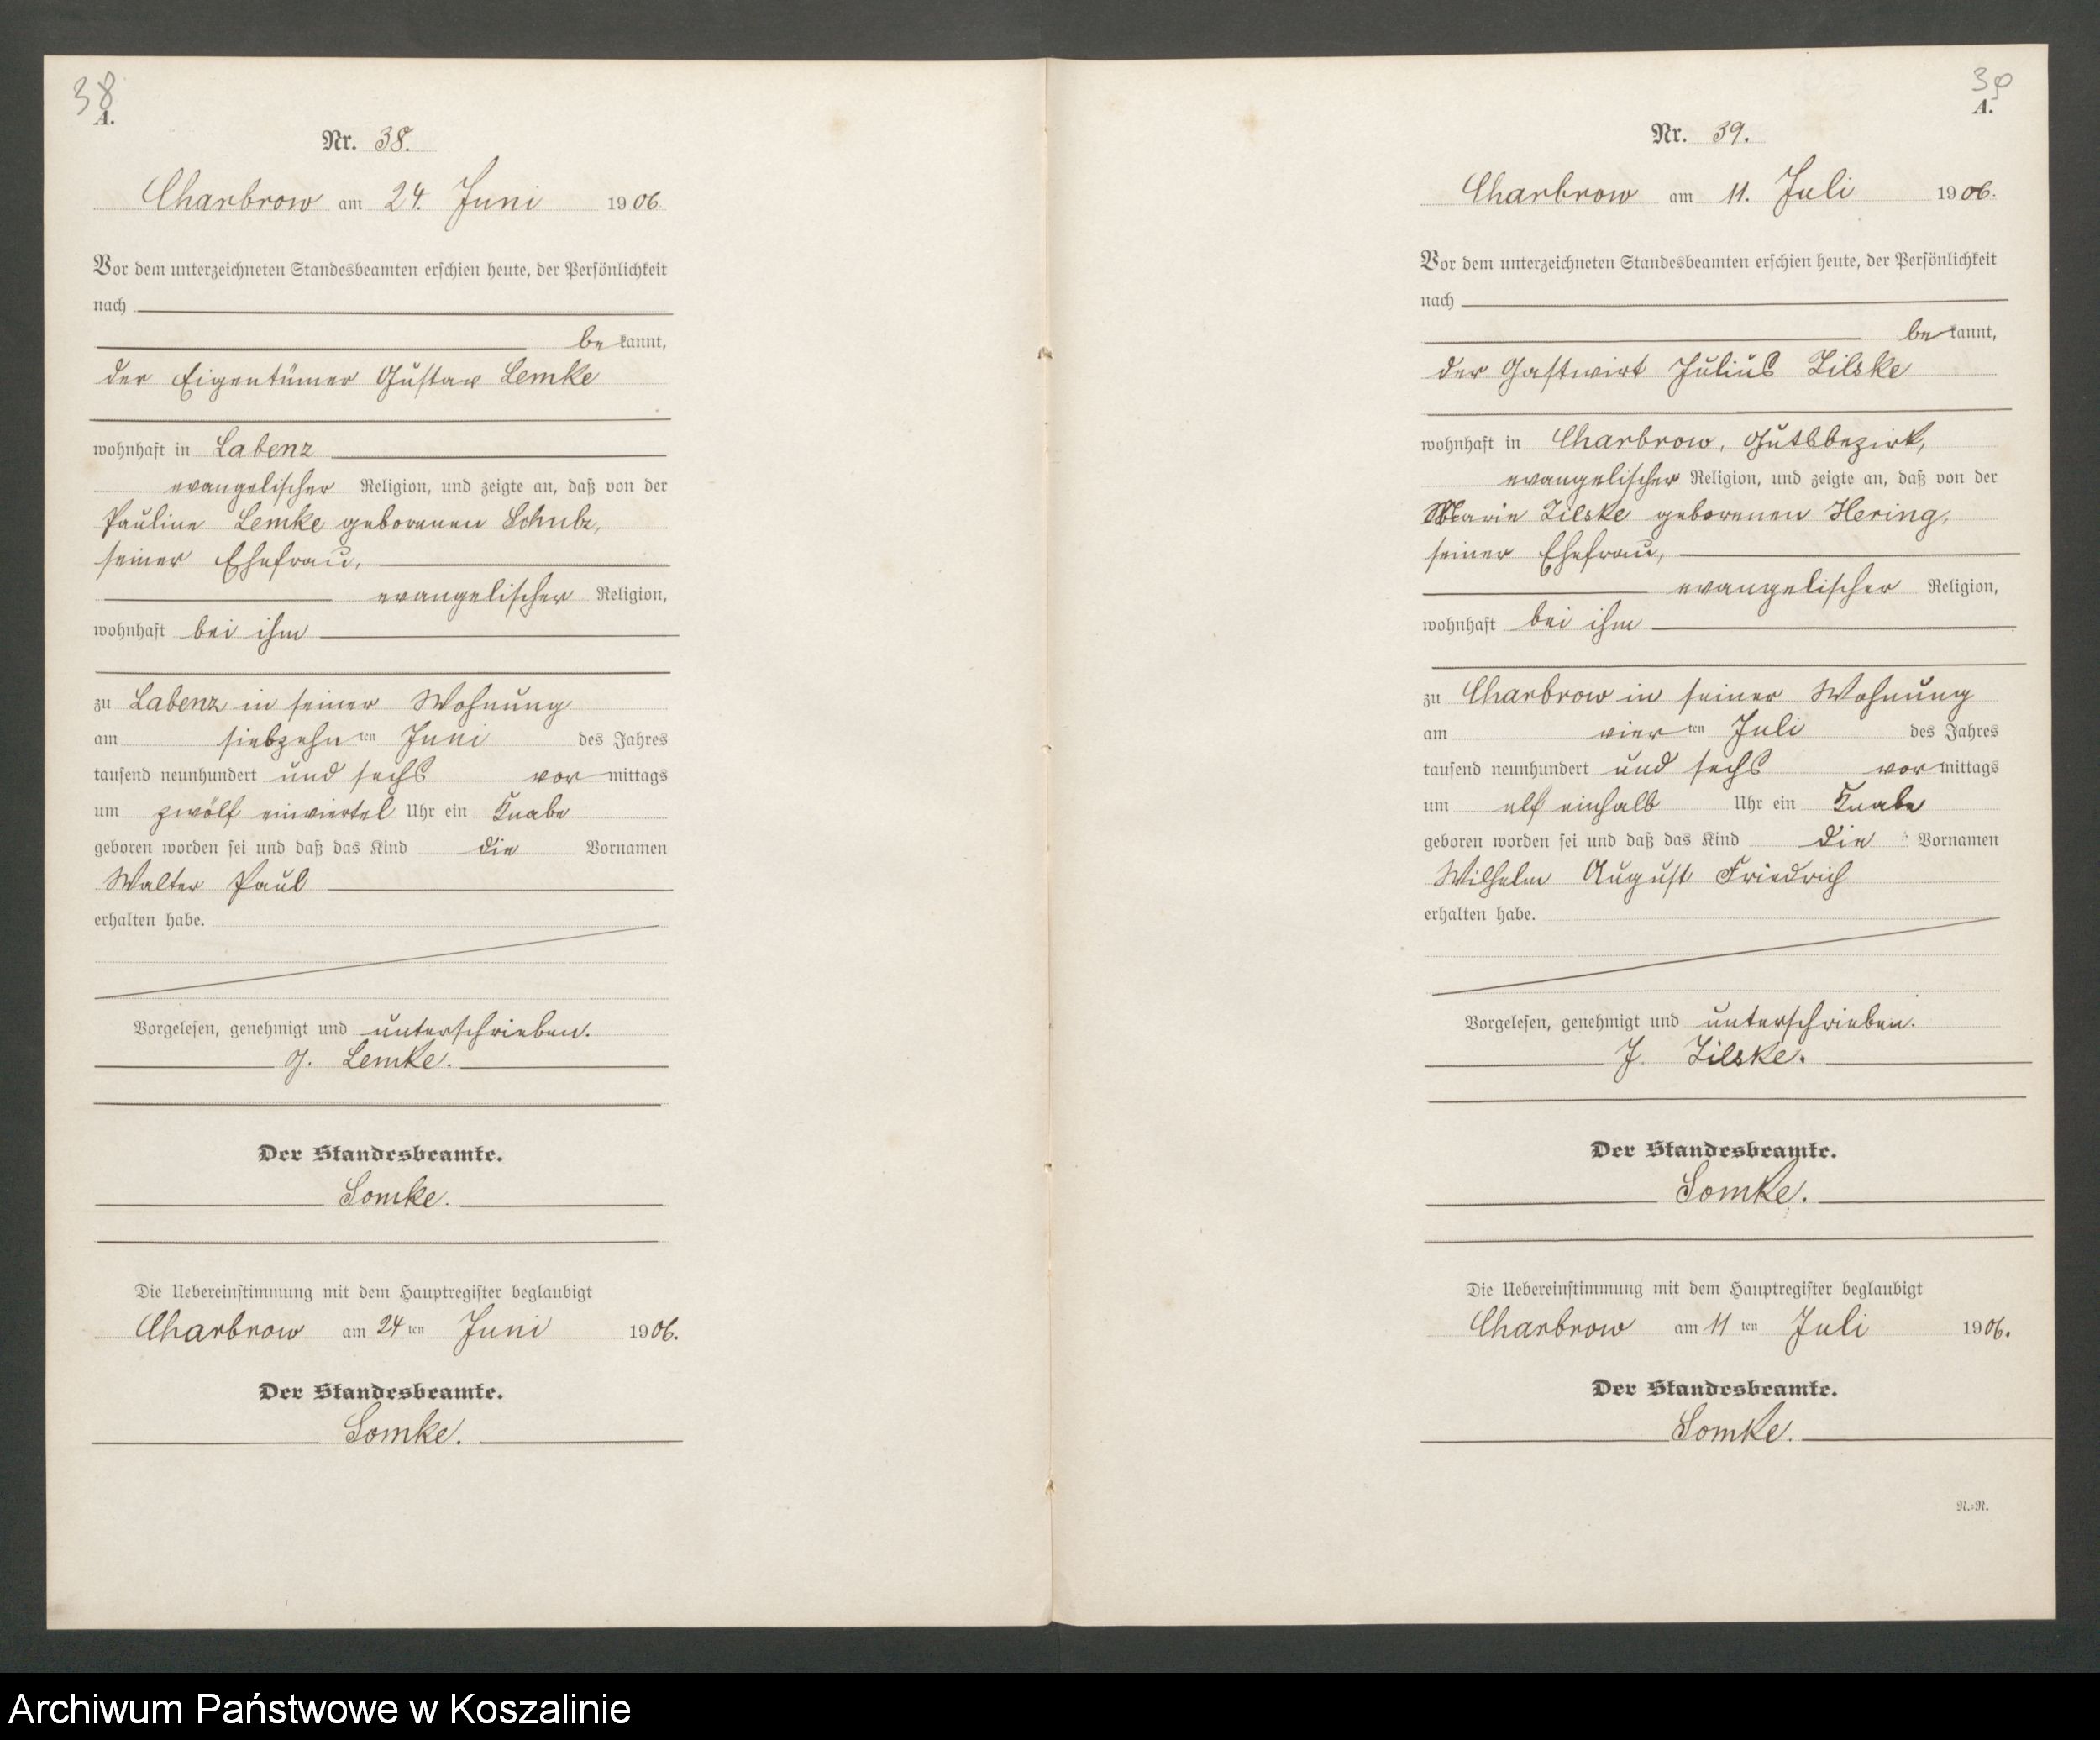 38
A.
Nr. 38.
Charbrow am 24. Juni 1906.
Vor dem unterzeichneten Standesbeamten erschien heute, der Persönlichkeit
nach
bekannt,
der Eigentümer Gustav Lemke
wohnhaft in Labenz
evangelischer Religion, und zeigte an, daß von der
Pauline Lemke geborenen Schulz,
seiner Ehefrau,
evangelischer Religion,
wohnhaft bei ihm
zu Labenz in seiner Wohnung
am siebzehnten Juni des Jahres
tausend neunhundert und sechs vormittags
um zwölf einviertel Uhr ein Knabe
geboren worden sei und daß das Kind die Vornamen
Walter Paul
erhalten habe.
Vorgelesen, genehmigt und unterschrieben.
G. Lemke.
Der Standesbeamte.
Somke.
Die Uebereinstimmung mit dem Hauptregister beglaubigt
Charbrow am 24ten Juni 1906.
Der Standesbeamte.
Somke.
39
A.
Nr. 39.
Charbrow am 11. Juli 1906.
Vor dem unterzeichneten Standesbeamten erschien heute, der Persönlichkeit
nach
bekannt,
der Gastwirt Julius Zilske
wohnhaft in Charbrow, Gutsbezirk,
evangelischer Religion, und zeigte an, daß von der
Marie Zilske geborenen Hering,
seiner Ehefrau,
evangelischer Religion,
wohnhaft bei ihm
zu Charbrow in seiner Wohnung
am vierten Juli des Jahres
tausend neunhundert und sechs vormittags
um elf einhalb Uhr ein Knabe
geboren worden sei und daß das Kind die Vornamen
Wilhelm August Friedrich
erhalten habe.
Vorgelesen, genehmigt und unterschrieben.
J. Zilske.
Der Standesbeamte.
Somke.
Die Uebereinstimmung mit dem Hauptregister beglaubigt
Charbrow am 11ten Juli 1906.
Der Standesbeamte.
Somke.
N.-N.
Archiwum Państwowe w Koszalinie